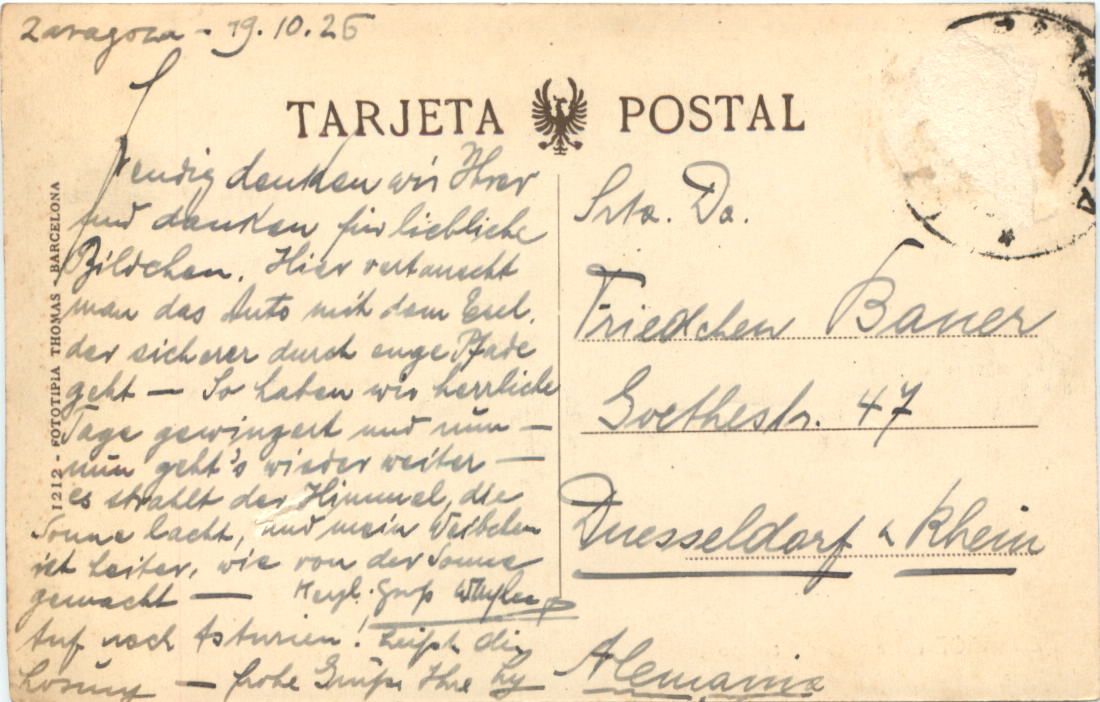 Zaragoza - 19.10.26
TARJETA POSTAL
Freudig denken wir Ihrer
und danken für liebliche
Bildchen. Hier vertauscht
man das Auto mit dem Esel,
der sicherer durch enge Pfade
geht — So haben wir herrliche
Tage gewingert und nun —
nun geht's wieder weiter —
es strahlt der Himmel, die
Sonne lacht, und mein Weibchen
ist heiter, wie von der Sonne
gemacht — Herzl. Gruß
Auf nach Asturien! heißt die
Losung — frohe Grüße Ihre
1212 - FOTOTIPIA THOMAS - BARCELONA
Srta. Da.
Friedchen Bauer
Goethestr. 47
Duesseldorf a Rhein
Alemania